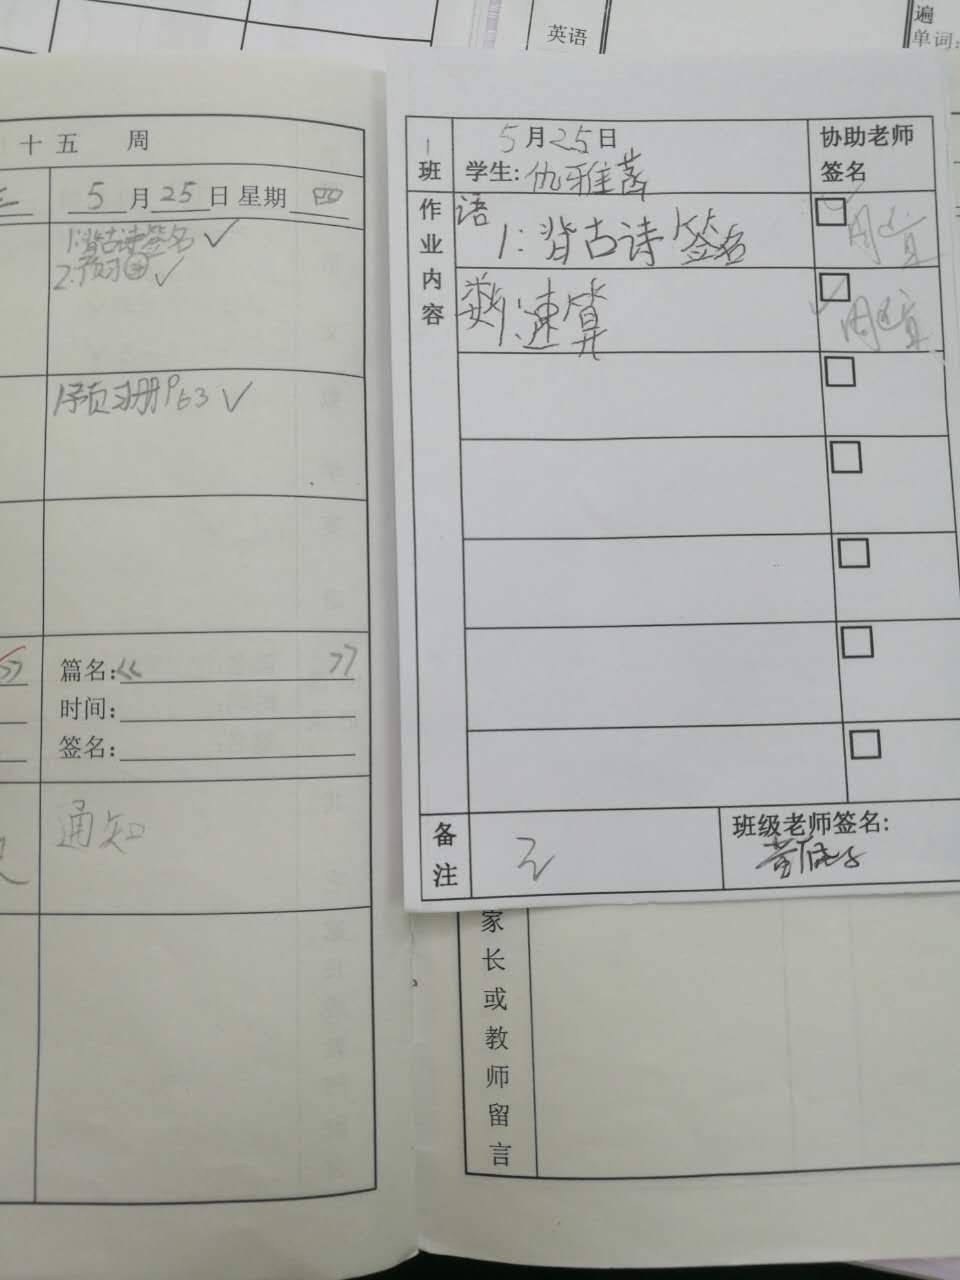 英语
遍
单词:
十五 周
5月25日 星期四
1.背古诗签名 ✓
2.预习 ✓
1.预习册P63 ✓
篇名:《 》
时间:
签名:
通知
一班
5月25日
学生:仇雅
协助老师签名
作业内容
语
1:背古诗 签名
数:速算
备注
无
班级老师签名:
家长或教师留言